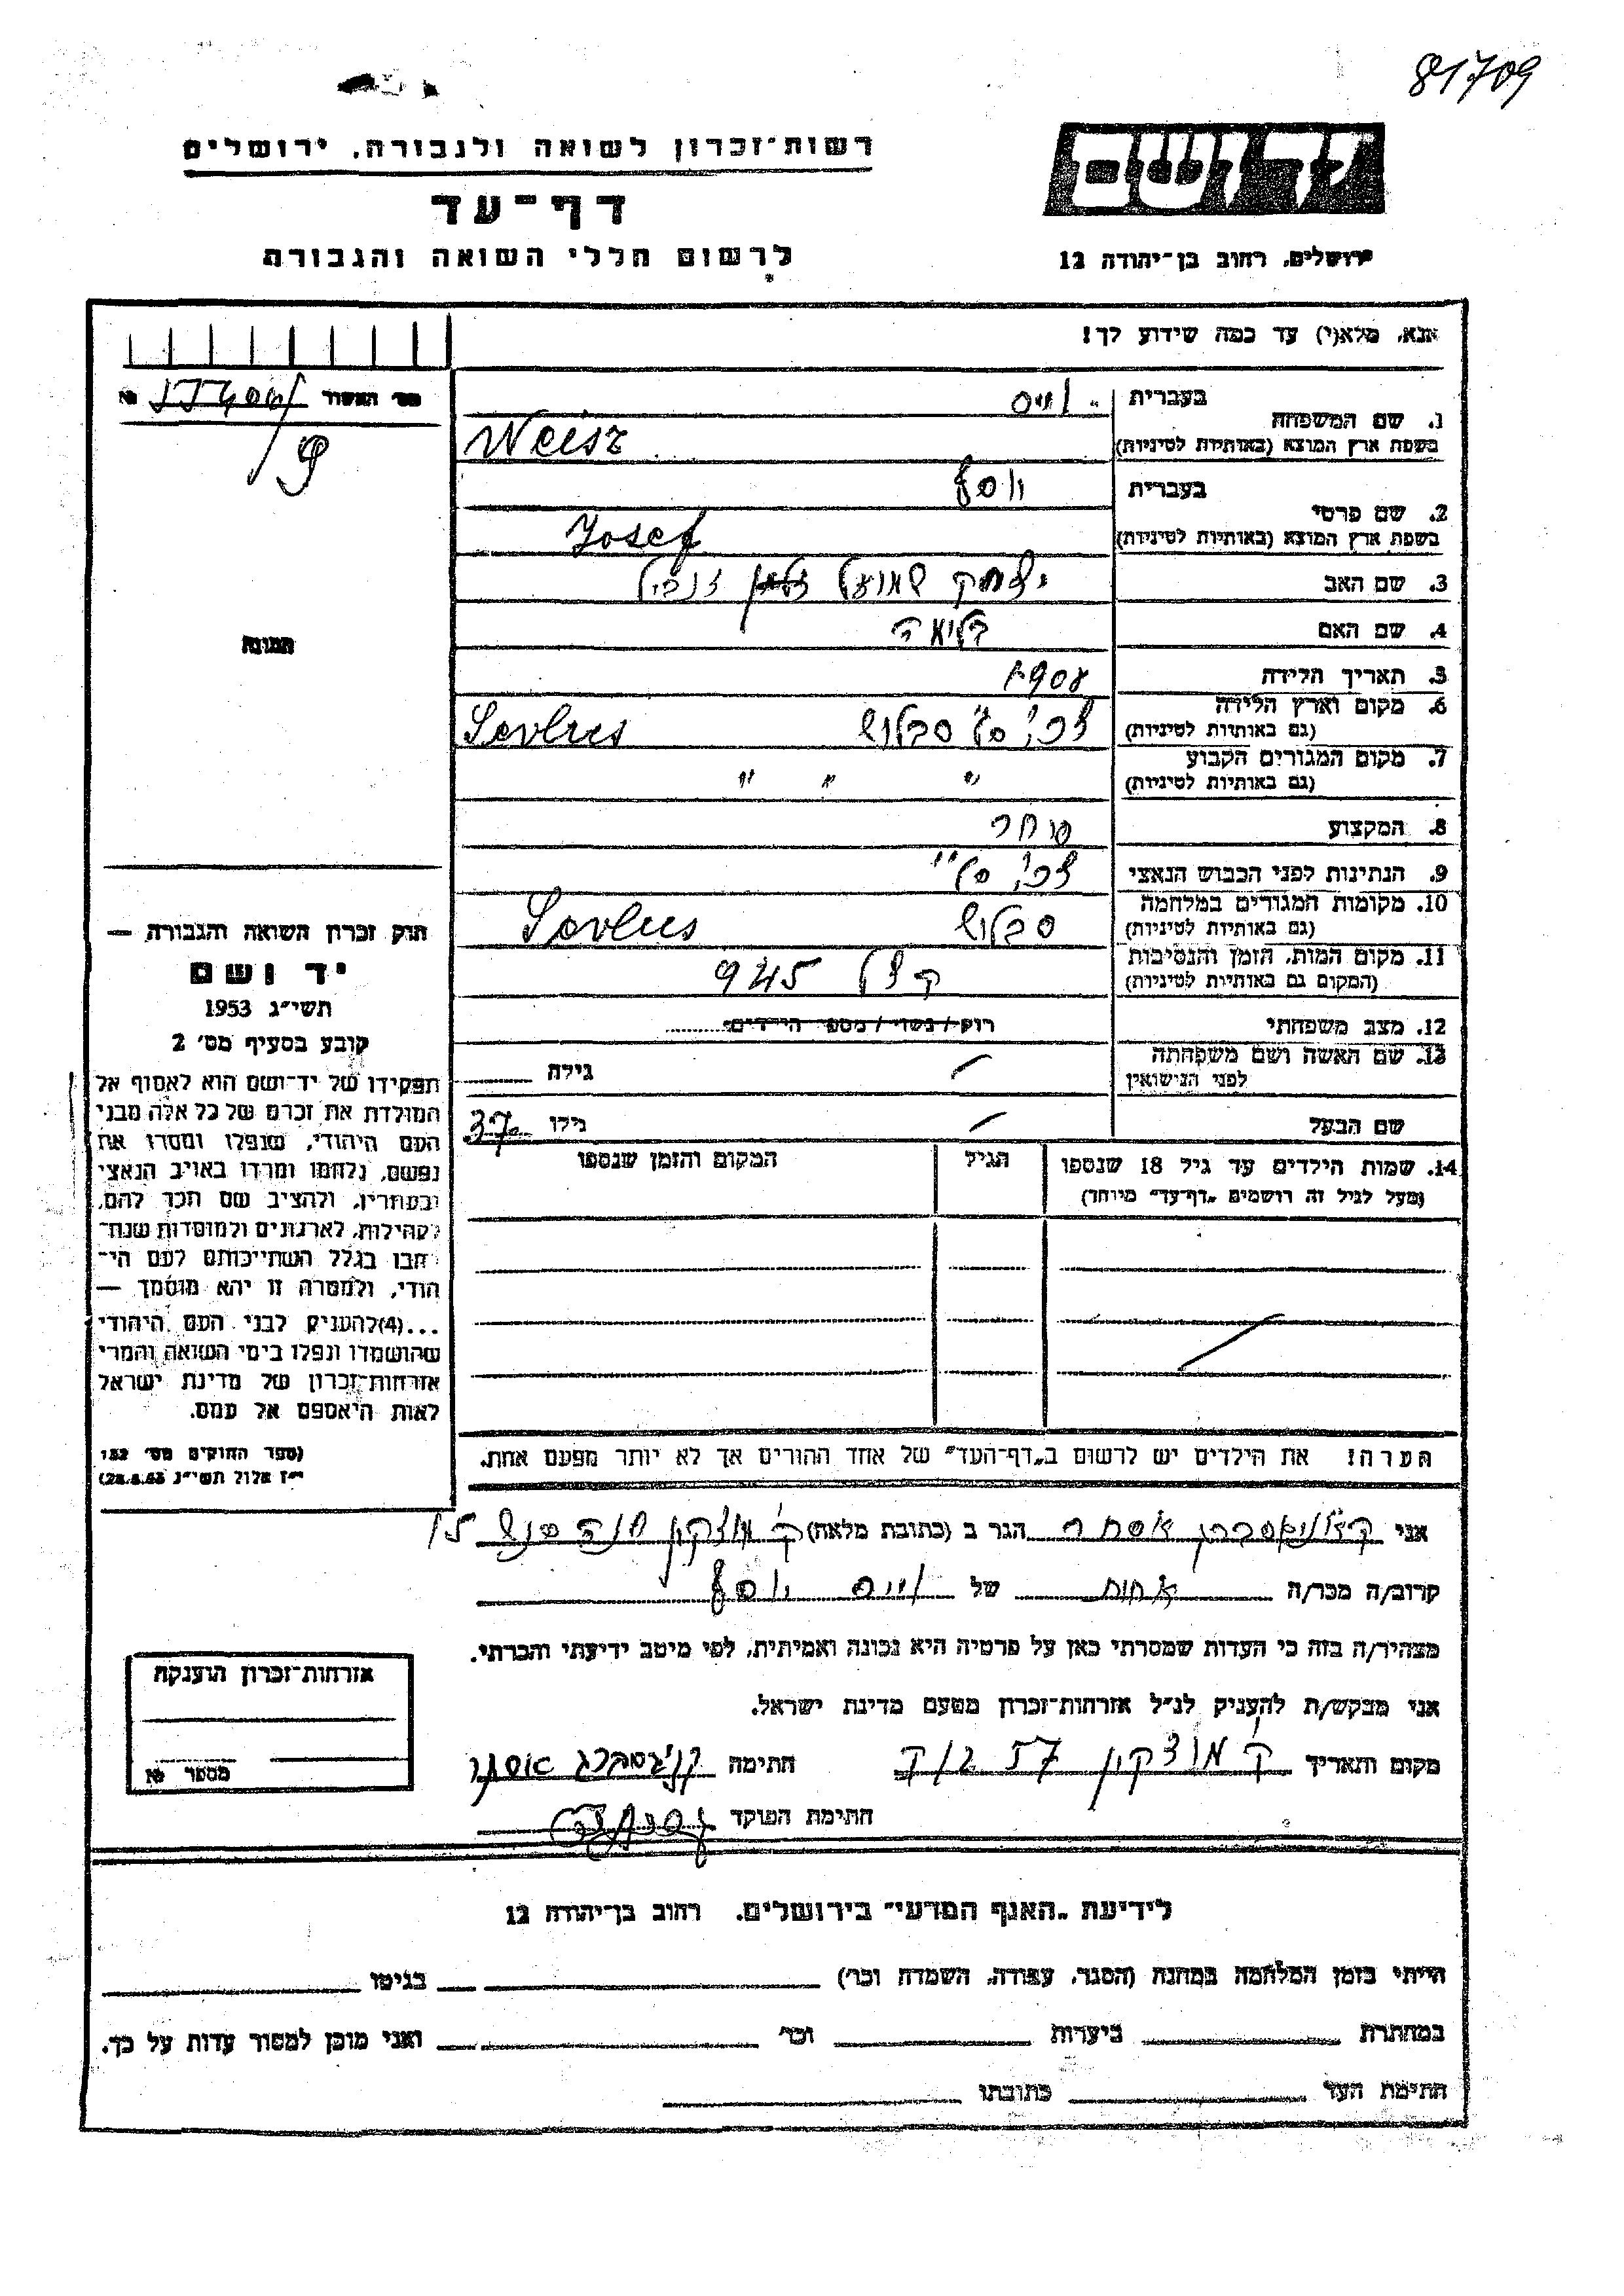 81709
רשות-זכרון לשואה ולגבורה, ירושלים
דף-עד
לרשום חללי השואה והגבורה
ידושם
ירושלים, רחוב בן-יהודה 12
אנא, מלא(י) עד כמה שידוע לך!
בעברית וייס
1. שם המשפחה
בשפת ארץ המוצא (באותיות לטיניות) Weisz
בעברית יוסף
2. שם פרטי
בשפת ארץ המוצא (באותיות לטיניות) Josef
3. שם האב יצחק שמואל
4. שם האם
5. תאריך הלידה 1908
6. מקום וארץ הלידה צ'כי סל' סבלוש Sevlus
(גם באותיות לטיניות)
7. מקום המגורים הקבוע " " "
(גם באותיות לטיניות)
8. המקצוע סוחר
9. הנתינות לפני הכבוש הנאצי
10. מקומות המגורים במלחמה סבלוש Sevlus
(גם באותיות לטיניות)
11. מקום המות, הזמן והנסיבות 945
(המקום גם באותיות לטיניות)
12. מצב משפחתי רווק / נשוי / מספר הילדים
13. שם האשה ושם משפחתה
לפני הנישואין
גילה
שם הבעל
גילו 37
14. שמות הילדים עד גיל 18 שנספו
(מעל לגיל זה רושמים "דף-עד" מיוחד)
הגיל
המקום והזמן שנספו
הערה! את הילדים יש לרשום ב"דף-העד" של אחד ההורים אך לא יותר מפעם אחת.
מס' האשור №
תמונה
חוק זכרון השואה והגבורה —
יד ושם
תשי"ג 1953
קובע בסעיף מס' 2
תפקידו של יד-ושם הוא לאסוף אל
המולדת את זכרם של כל אלה מבני
העם היהודי, שנפלו ומסרו את
נפשם, נלחמו ומרדו באויב הנאצי
ובעוזריו, ולהציב שם וזכר להם,
לקהילות, לארגונים ולמוסדות שנח-
רבו בגלל השתייכותם לעם הי-
הודי, ולמטרה זו יהא מוסמך —
...(4) להעניק לבני העם היהודי
שהושמדו ונפלו בימי השואה והמרי
אזרחות-זכרון של מדינת ישראל
לאות היאספם אל עמם.
(ספר החוקים מס' 132
י"ז אלול תשי"ג 28.8.53)
אני אסתר הגר ב (כתובת מלאה) ק' מוצקין 15
קרוב/ה מכר/ה אחות של וייס יוסף
מצהיר/ה בזה כי העדות שמסרתי כאן על פרטיה היא נכונה ואמיתית, לפי מיטב ידיעתי והכרתי.
אני מבקש/ת להעניק לנ"ל אזרחות-זכרון מטעם מדינת ישראל.
מקום ותאריך ק' מוצקין חתימה אסתר
חתימת הפוקד
אזרחות-זכרון הוענקה
מספר №
לידיעת "האגף המדעי" בירושלים, רחוב בן-יהודה 12
הייתי בזמן המלחמה במחנה (הסגר, עבודה, השמדה וכו') בגיטו
במחתרת ביערות וכו' ואני מוכן למסור עדות על כך.
חתימת העד כתובתו